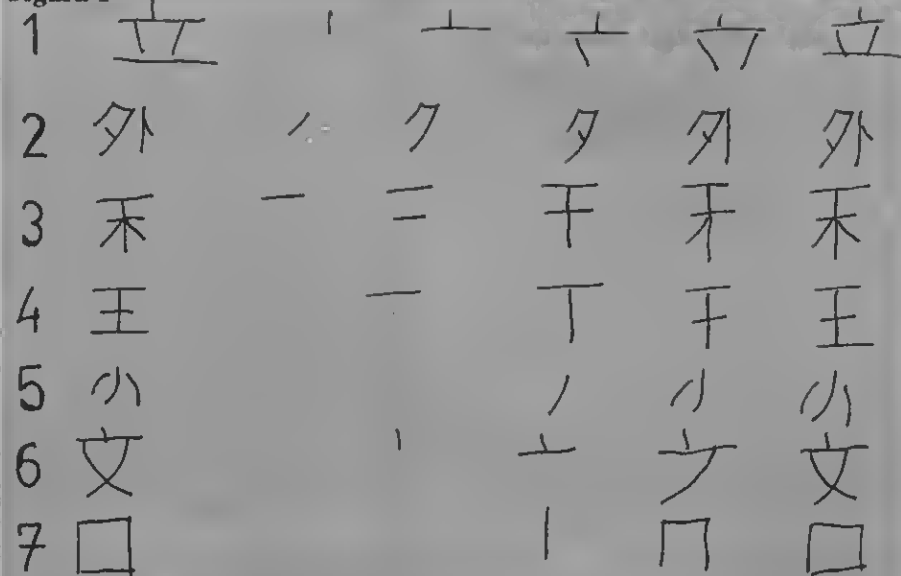 1 立 丨 亠 立
2 外 ノ ク 夕 外
3 禾 一 二 干 禾
4 王 一 丅 干 王
5 小 ノ 小
6 文 丶 亠 文
7 口 丨 冂 口